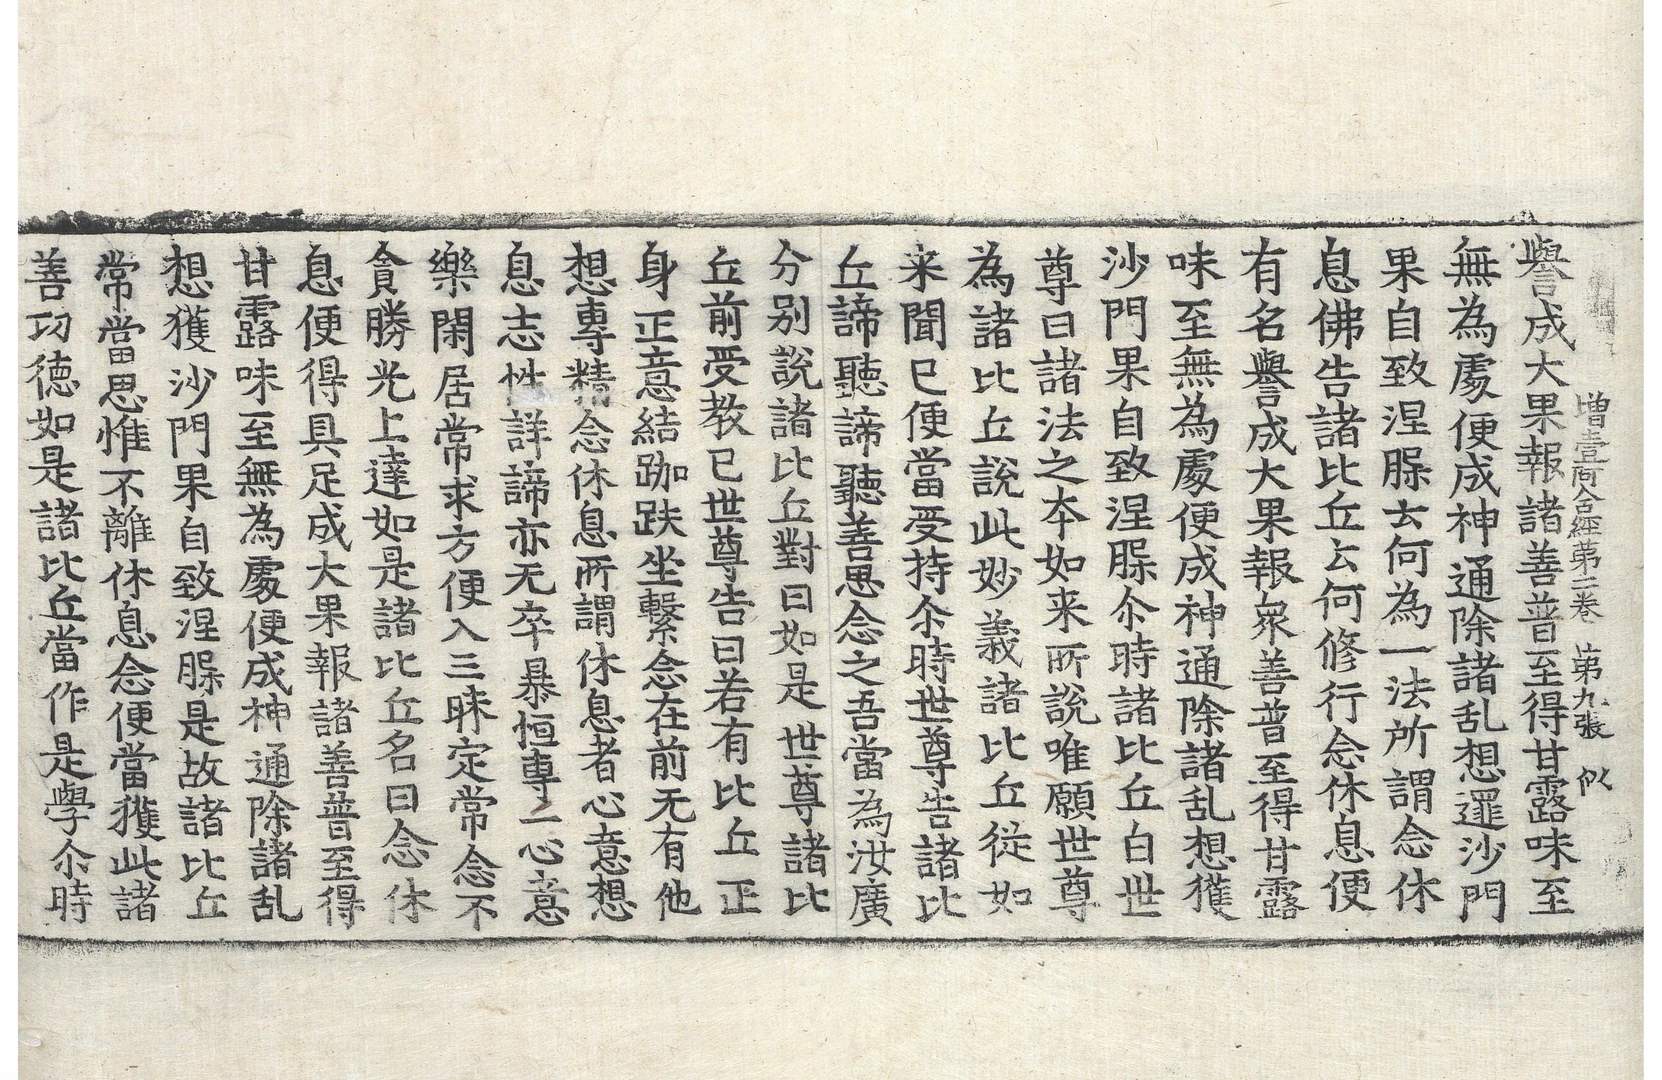 增壹阿含經第二卷　第九張　似
譽成大果報諸善普至得甘露味至
無為處便成神通除諸乱想逮沙門
果自致涅槃云何為一法所謂念休
息佛告諸比丘云何修行念休息便
有名譽成大果報衆善普至得甘露
味至無為處便成神通除諸乱想獲
沙門果自致涅槃尒時諸比丘白世
尊曰諸法之本如来所說唯願世尊
為諸比丘說此妙義諸比丘從如
来聞已便當受持尒時世尊告諸比
丘諦聽諦聽善思念之吾當為汝廣
分別說諸比丘對曰如是世尊諸比
丘前受教已世尊告曰若有比丘正
身正意結跏趺坐繫念在前无有他
想專精念休息所謂休息者心意想
息志性詳諦亦无卒暴恒專一心意
樂閑居常求方便入三昧定常念不
貪勝光上達如是諸比丘名曰念休
息便得具足成大果報諸善普至得
甘露味至無為處便成神通除諸乱
想獲沙門果自致涅槃是故諸比丘
常當思惟不離休息念便當獲此諸
善功德如是諸比丘當作是學尒時